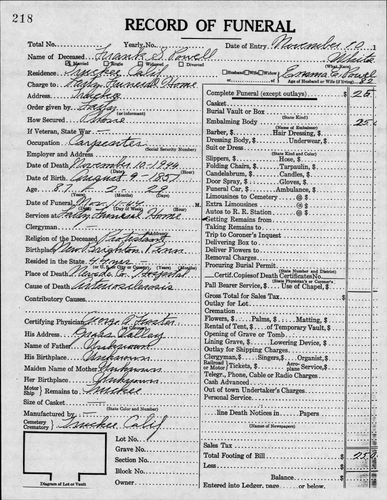 218
RECORD OF FUNERAL
Total No. Yearly No. Date of Entry November 10, 1
Name of Deceased Frank S. Powell White
Married Single Widowed Divorced (What Race)
Residence Truckee Calif. Husband Wife Widow of Emma E. Powell
Charge to Age of Husband or Wife (if living) 82
Address Truckee
Order given by
(or informant)
How Secured Phone
If Veteran, State War
Occupation Carpenter
(Social Security Number)
Employer and Address
Date of Death November 10 1944
Date of Birth August 9 1857
Age 87 2 29
(Years) (Months) (Days)
Date of Funeral Nov M.
Services at Funeral Home
Clergyman
Religion of the Deceased Protestant
Birthplace New Brighton Penn
Resided in the State 44 yrs
(Years) (Months)
Place of Death Nevada Co Hospital
Cause of Death Arteriosclerosis
Contributory Causes
Certifying Physician George A. Foster
His Address Grass Valley
Name of Father Unknown
His Birthplace Unknown
Maiden Name of Mother Unknown
Her Birthplace Unknown
Motor Ship } Remains to Truckee
Size of Casket
(State Color and Number)
Manufactured by
Cemetery Crematory } Truckee Calif
Lot No.
Grave No.
Section No.
Block No.
Owner
Diagram of Lot or Vault
Complete Funeral (except outlays) $ 25
Burial Vault or Box
(State Kind)
Embalming Body 25
(Name of Embalmer)
Barber, $ Hair Dressing, $
Dressing Body, $ Underwear, $
Suit or Dress
(State Kind and Color)
Slippers, $ Hose, $
Folding Chairs, $ Tarpaulin, $
Candelabrum, $ Candles, $
Door Spray, $ Gloves, $
Funeral Car, $ Ambulance, $
Limousines to Cemetery @ $
Extra Limousines @ $
Autos to R. R. Station @ $
Getting Remains from
Taking Remains to
Trip to Coroner's Inquest
Delivering Box to
Deliver Flowers to
Removal Charges
Procuring Burial Permit
(State Number and District)
Certif. Copies of Death Certificate
(State Physician's or Coroner's)
Pall Bearer Service, $ Use of Chapel, $
Gross Total for Sales Tax $
Outlay for Lot
Cremation
Flowers, $ Palms, $ Matting, $
Rental of Tent, $ of Temporary Vault, $
Opening of Grave or Tomb
Lining Grave, $ Lowering Device, $
Outlay for Shipping Charges
Clergyman, $ Singers, $ Organist, $
Railroad or Motor } Tickets, $ Aeroplane Service, $
Telegr., Phone, Cable or Radio Charges
Cash Advanced
Out of town Undertaker's Charges
Personal Service
line Death Notices in Papers
(Names of Newspapers)
Sales Tax
Total Footing of Bill $ 250
Less
Balance $
Entered into Ledger, page or below.